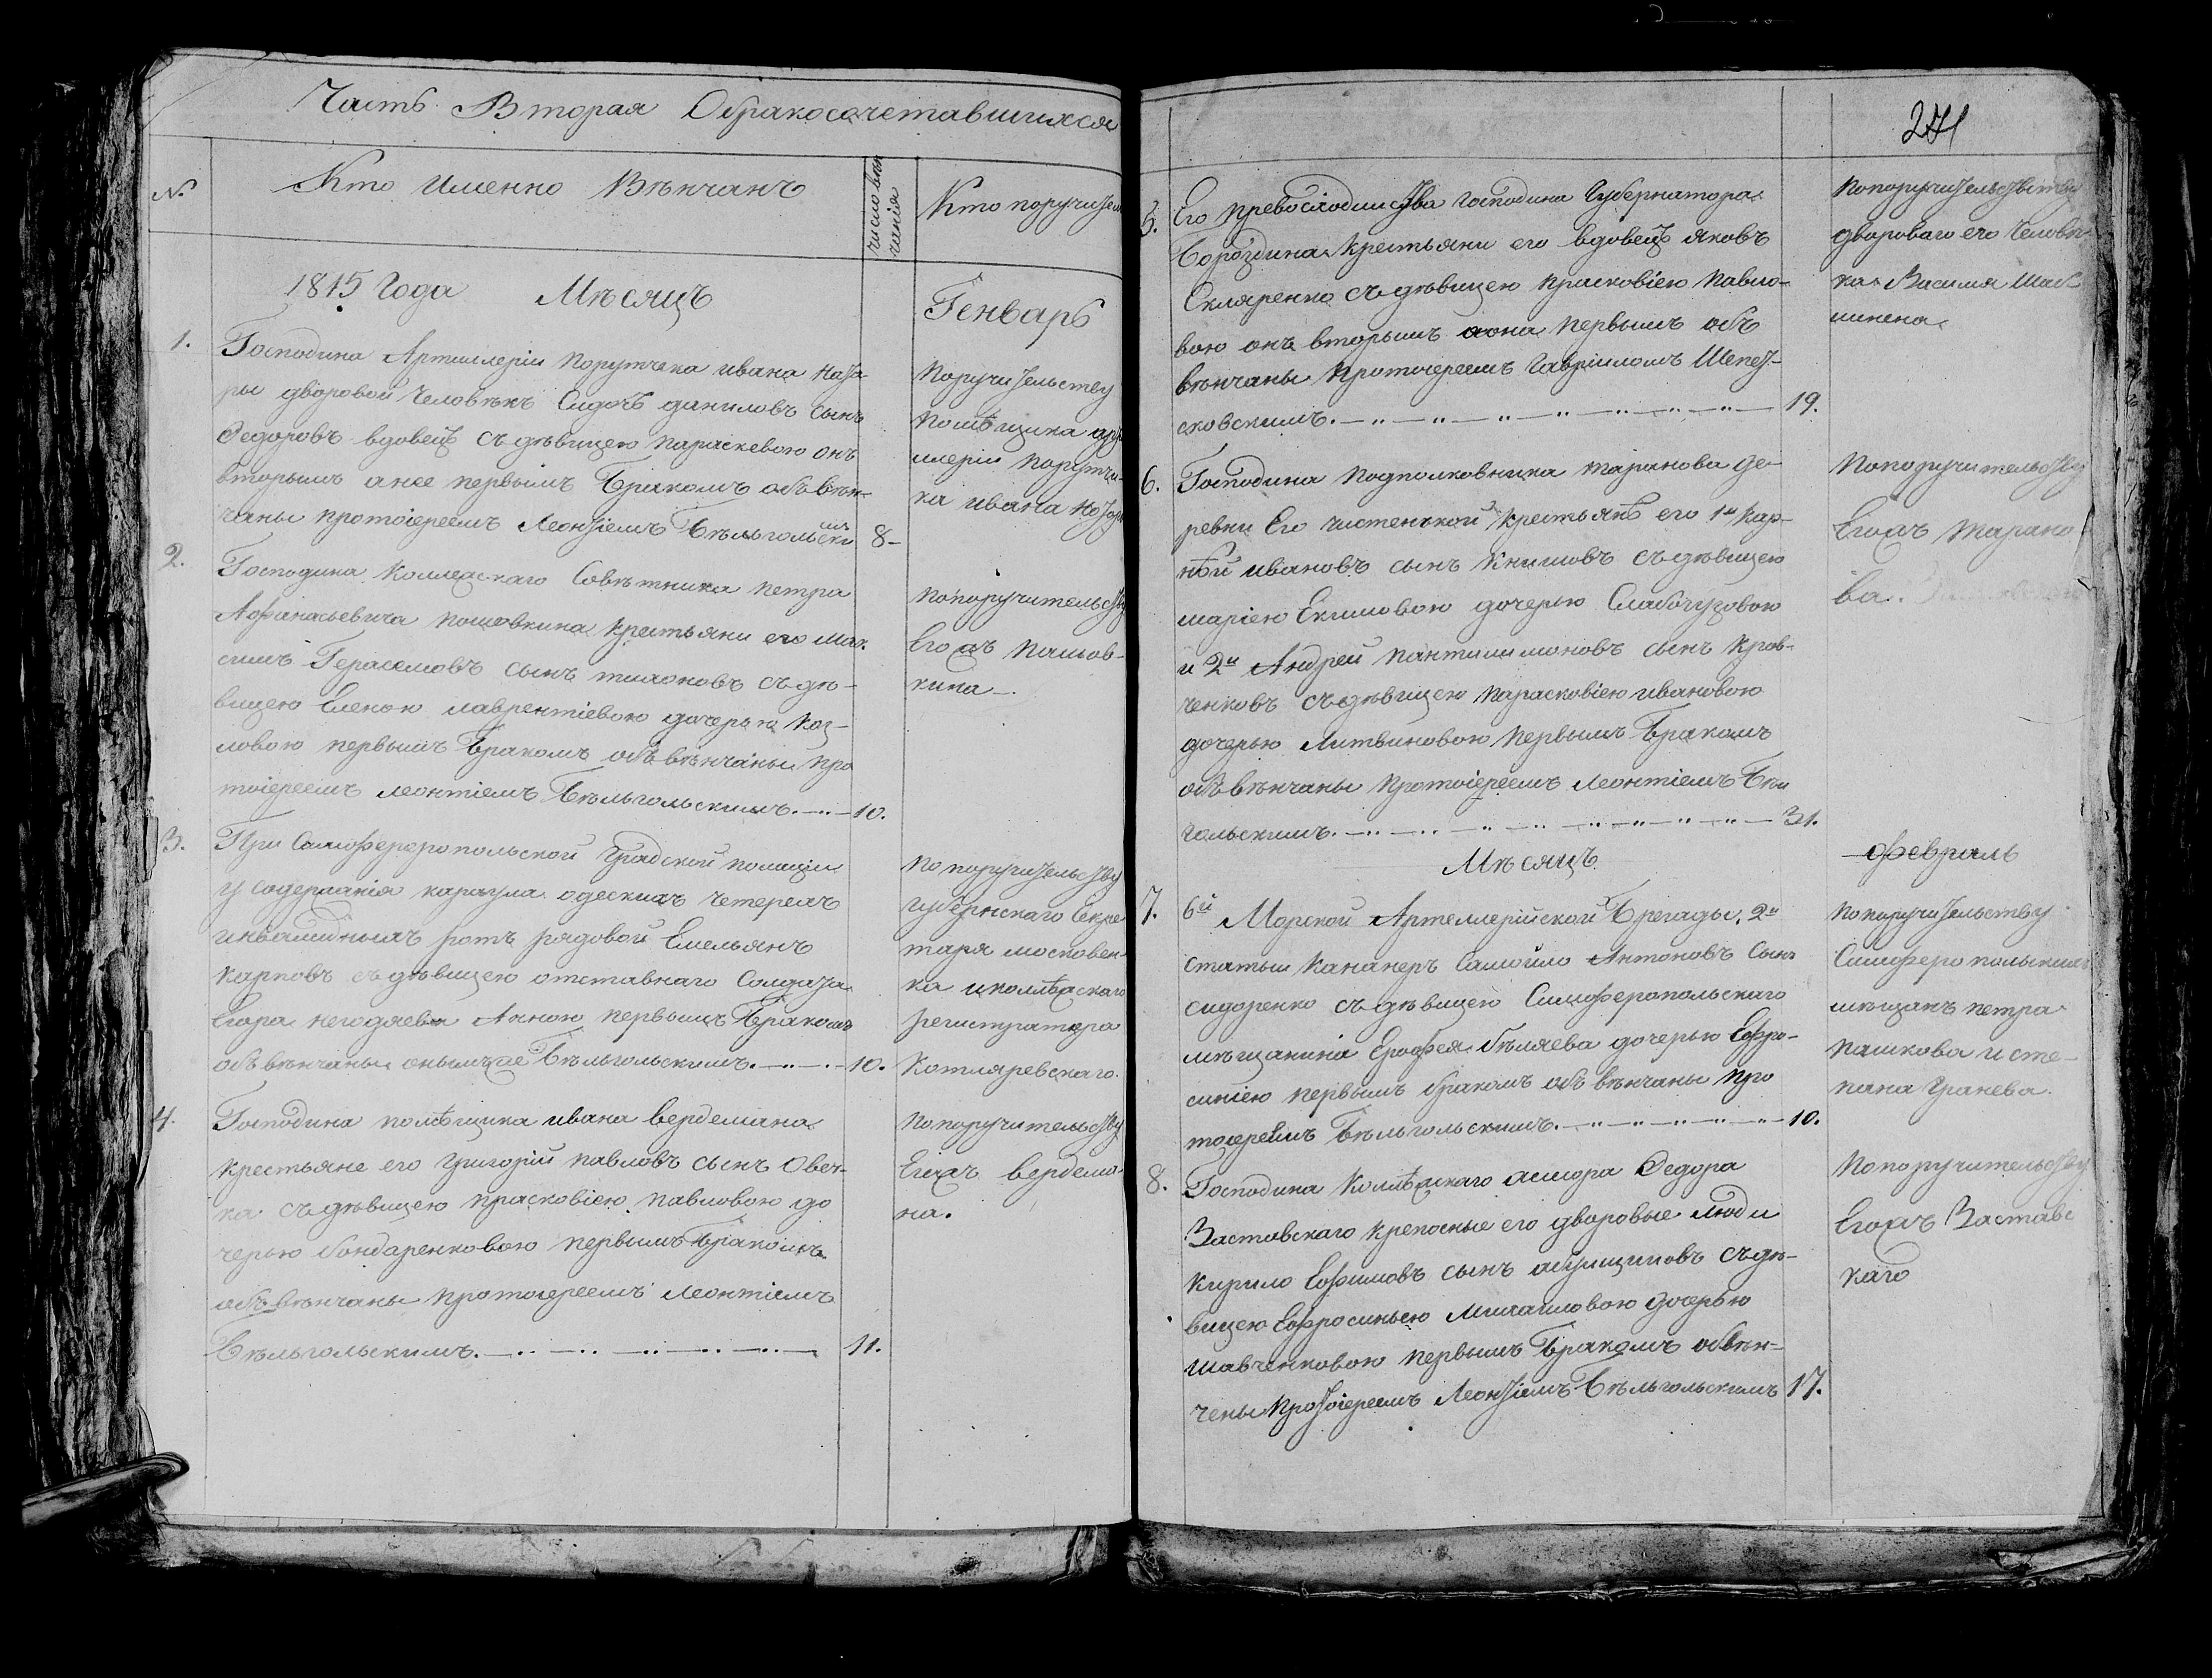 Часть Вторая Обракосочетавшихся
№
Кто именно Вѣнчанъ
число вѣн
чанія
Кто поручител
1815 Года Мѣсяцъ
Генварь
1.
Господина Артиллеріи порутчека ивана Ната-
ры дворовой Человѣкъ Сидоръ даниловъ сынъ
Федоровъ вдовецъ съ дѣвицею параскевою онъ
вторымъ а нее первымъ Бракомъ объ вѣн-
чаны протоіереемъ Леонтіемъ Бѣльгольски
мъ
8-
Поручительству
помѣщика
ллеріи порутчи-
ка ивана
2.
Господина Коллежскаго Совѣтника петра
Афанасьевича пошовкина крестьяни его Мак.
симъ Герасемовъ сынъ тихоновъ съ дѣ-
вицею Еленою лаврентіевою дочерью Коз-
ловою первымъ Бракомъ объ вѣнчаны про
тоіереемъ леонтіемъ Бѣльгольскимъ. 10.
по поручительству
Егожъ пашов-
кина
3.
При Симферопольской Градской полиціи
у содержанія караула одескихъ четерехъ
инвалидныхъ ротъ рядовой Емельянъ
карповъ съ дѣвицею отставнаго Солдата
Егора негодяева Анною первымъ Бракомъ
объ вѣнчаны онымъже Бѣльгольскимъ. 10.
по поручительству
губернскаго Секре
таря московен-
ка и коллѣжскаго
регистратора
Котляревскаго.
4.
Господина помѣщика ивана вердемана
крестьяне его григорій павловъ сынъ Овеч-
ка съ дѣвицею прасковіею павловою до
черью бондаренковою первымъ Бракомъ
объ вѣнчаны протоіереемъ леонтіемъ
Бѣльгольскимъ. 11.
по поручительству
Егожъ вердема-
на.
271
5.
Его превосходительства господина Губернатора
Бороздина крестьяни его вдовецъ яковъ
Скляренко съ дѣвицею прасковіею павло-
вою онъ вторымъ а она первымъ объ
вѣнчаны протоіереемъ гавріиломъ Шепет-
ковскимъ. 19.
по поручительству
двороваго его Человѣ
ка Василія

6.
Господина Подполковника таранова де-
ревни Его чистенькой крестьянъ его 1й Кар-
нѣй ивановъ сынъ Климовъ съ дѣвицею
маріею Екимовою дочерью Слабогузовою
и 2й Андрей пантилимоновъ сынъ Крав-
ченковъ съ дѣвицею парасковіею ивановою
дочерью литвиновою первымъ Бракомъ
объ вѣнчаны протоіереемъ леонтіемъ Бѣл
гольскимъ. 31.
по поручительству
Егожъ тарано
ва.
Мѣсяцъ
февраль
7.
6й Морской Артеллерійской Брегады 2й
статьи Кананеръ Самойло Антоновъ Сынъ
сидоренко съ дѣвицею Симферопольскаго
мѣщанина Ерофея бѣляева дочерью Ефро-
синіею первымъ бракомъ объ вѣнчаны про
тоіереемъ Бѣльгольскимъ. 10.
по поручительству
Симферопольскихъ
мѣщанъ петра
пашкова и сте-
пана Гранева.
8.
Господина Коллѣжскаго асесора Федора
Заставскаго крепосные его дворовые люди
Кирило Ефимовъ сынъ абущиковъ съ дѣ-
вицею Ефросиньею Михаиловою дочерью
шавченковою первымъ Бракомъ обвѣн-
чены протоіереемъ Леонтіемъ Бѣльгольскимъ 17.
по поручительству
Егожъ Заставс
каго